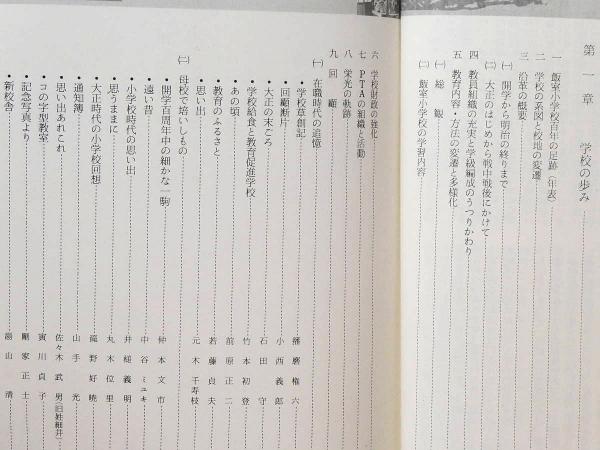 第一章　学校の歩み
一　飯室小学校百年の足跡（年表）
二　学校の系図と校地の変遷
三　沿革の概要
㈠　開学から明治の終りまで
㈡　大正のはじめから戦中戦後にかけて
四　教員組織の充実と学級編成のうつりかわり
五　教育内容・方法の変遷と多様化
㈠　総観
㈡　飯室小学校の学習内容
六　学校財政の強化
七　PTAの組織と活動
八　栄光の軌跡
九　回顧
㈠　在職時代の追憶
・学校草創記　播磨権六
・回顧断片　小西義郎
・大正の末ごろ　石田守
・学校給食と教育促進学校　竹本初登
・あの頃　前原正二
・教育のふるさと　若藤貞夫
・思い出　元木千寿枝
㈡　母校で培いしもの
・開学百周年中の細かな一駒　仲本文市
・遠い昔　中谷ミユキ
・小学校時代の思い出　井槌義明
・思うままに　丸木位里
・大正時代の小学校回想　籠野好暁
・通知簿　山手光
・思い出あれこれ　佐々木武男（旧姓細井）
・コの字型教室　寅川貞子
・記念写真より　剛家正士
・新校舎　湯山清